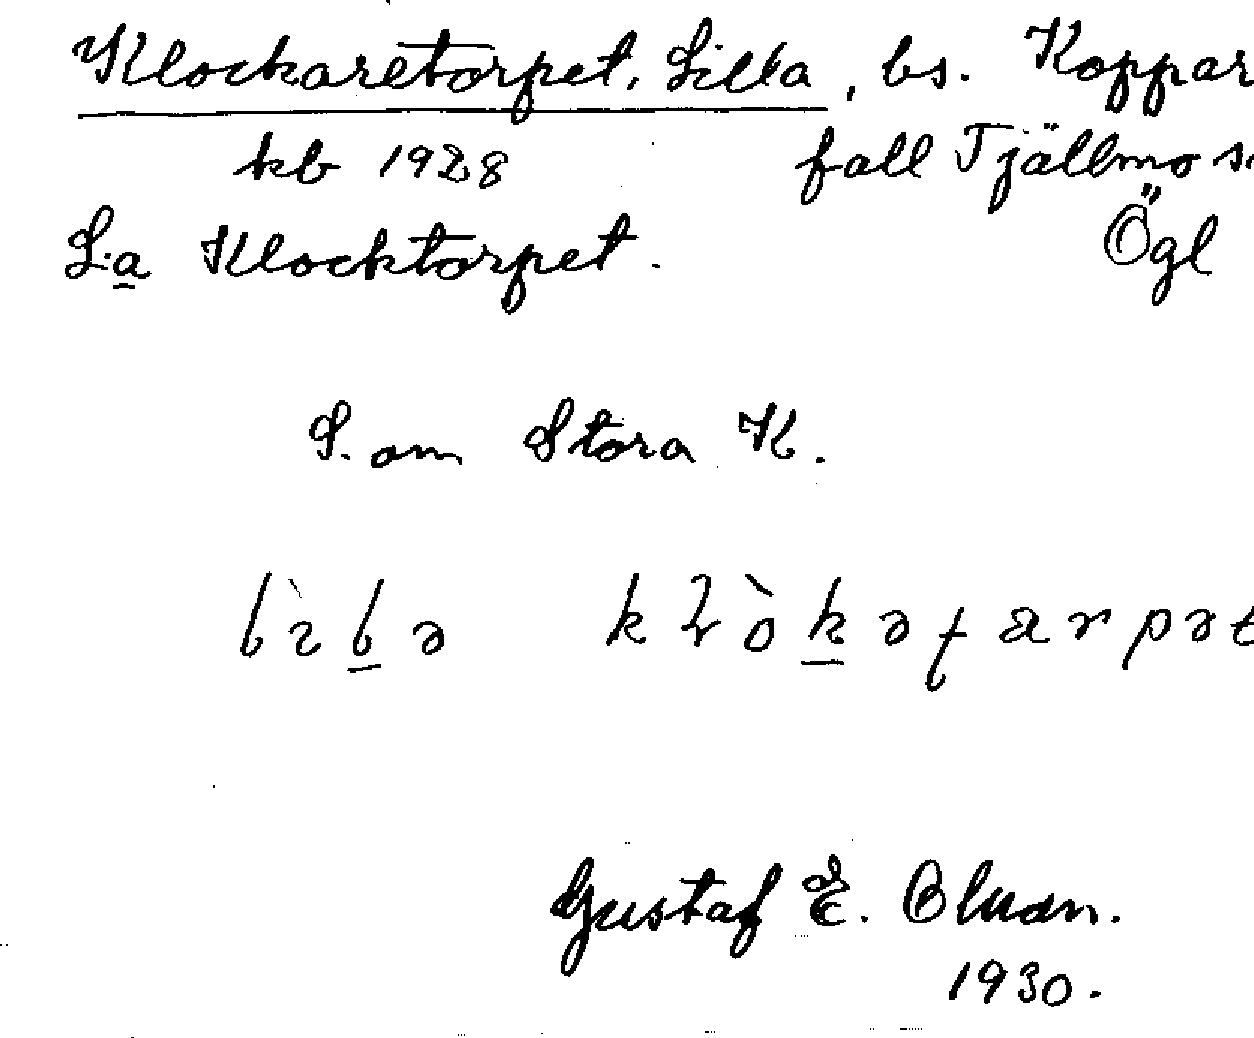 Klockaretorpet, Lilla, bs. Koppar
kb 1928 fall Tjällmo
L:a Klocktorpet. Ögl
S. om Stora K.
Gustaf E.
1930.